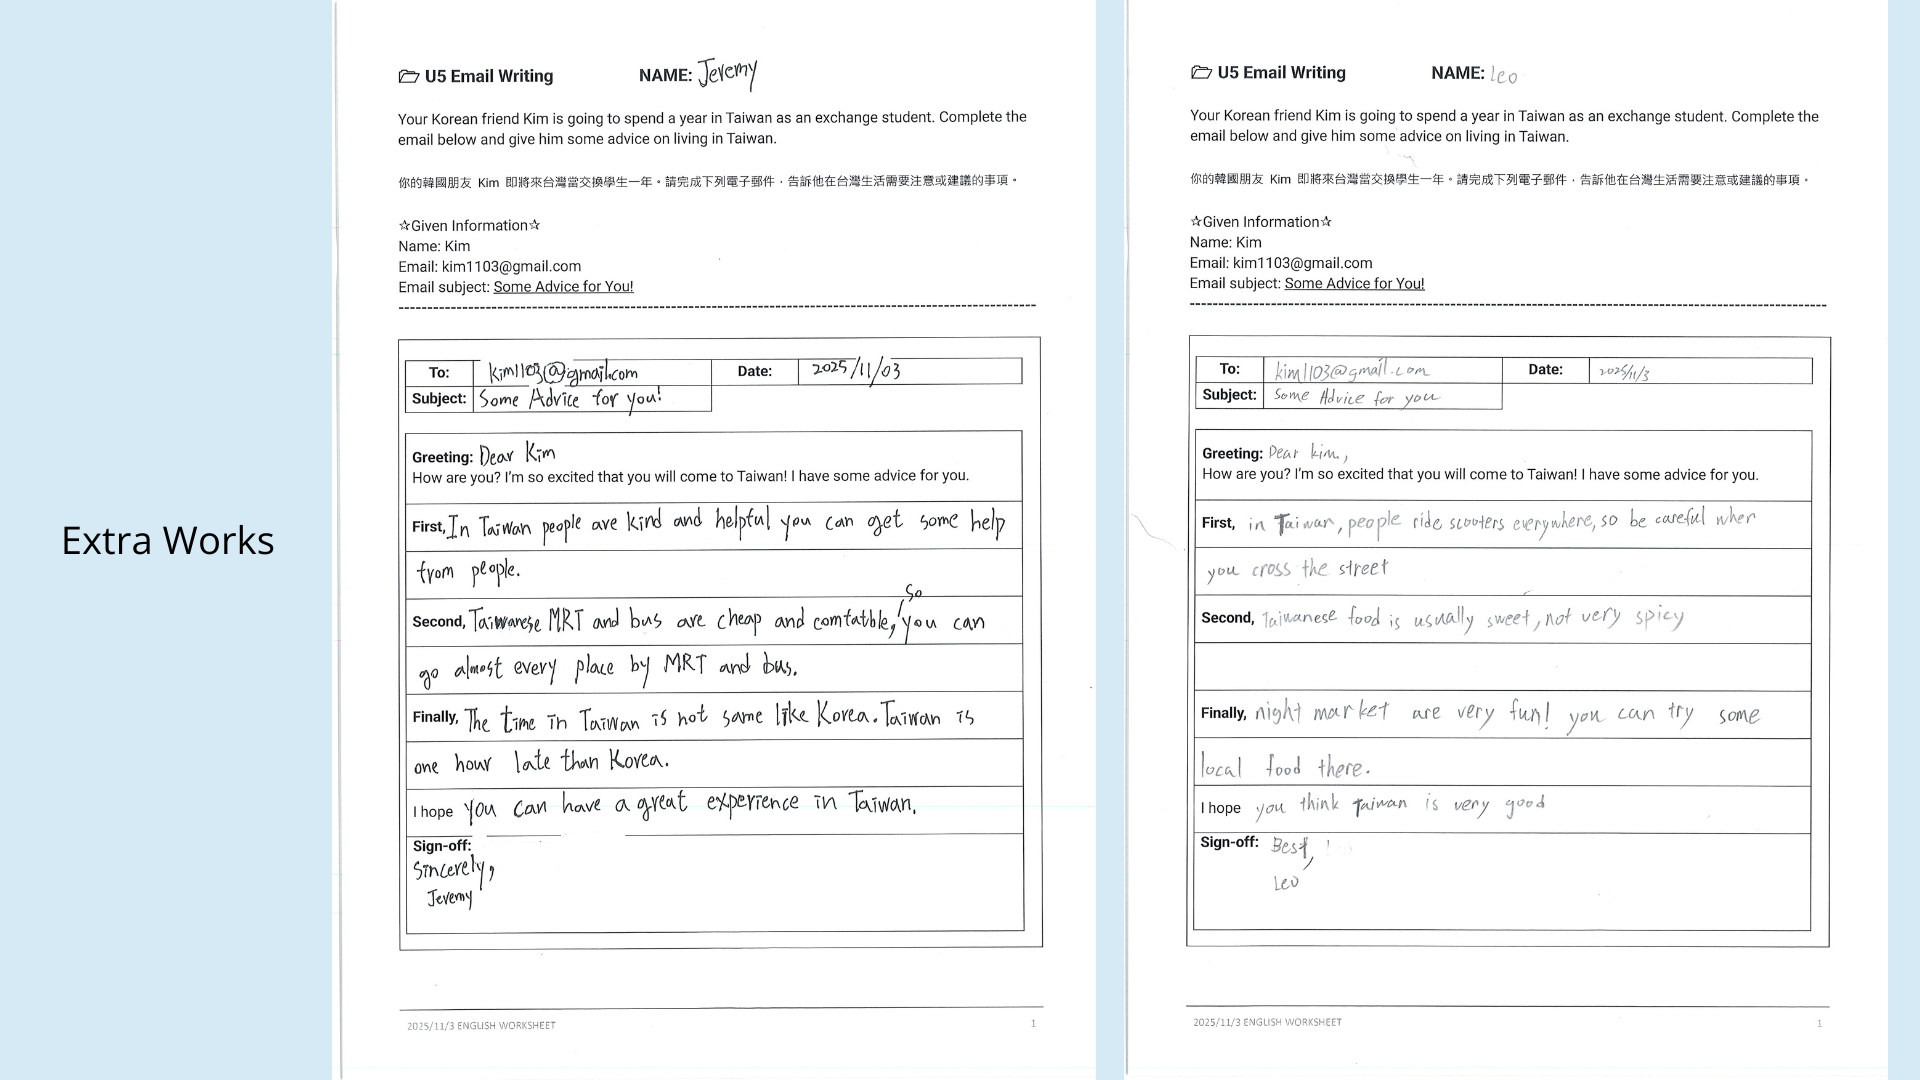 Extra Works
U5 Email Writing NAME: Jeremy
Your Korean friend Kim is going to spend a year in Taiwan as an exchange student. Complete the
email below and give him some advice on living in Taiwan.
你的韓國朋友 Kim 即將來台灣當交換學生一年。請完成下列電子郵件，告訴他在台灣生活需要注意或建議的事項。
☆Given Information☆
Name: Kim
Email: kim1103@gmail.com
Email subject: Some Advice for You!
To: kim1103@gmail.com Date: 2025/11/03
Subject: Some Advice for you!
Greeting: Dear Kim
How are you? I'm so excited that you will come to Taiwan! I have some advice for you.
First, In Taiwan people are kind and helpful you can get some help
from people.
so
Second, Taiwanese MRT and bus are cheap and comtatble, you can
go almost every place by MRT and bus.
Finally, The time in Taiwan is not same like Korea. Taiwan is
one hour late than Korea.
I hope you can have a great experience in Taiwan.
Sign-off:
Sincerely,
Jeremy
2025/11/3 ENGLISH WORKSHEET 1
U5 Email Writing NAME: Leo
Your Korean friend Kim is going to spend a year in Taiwan as an exchange student. Complete the
email below and give him some advice on living in Taiwan.
你的韓國朋友 Kim 即將來台灣當交換學生一年。請完成下列電子郵件，告訴他在台灣生活需要注意或建議的事項。
☆Given Information☆
Name: Kim
Email: kim1103@gmail.com
Email subject: Some Advice for You!
To: kim1103@gmail.com Date: 2025/11/3
Subject: Some Advice for you
Greeting: Dear kim,
How are you? I'm so excited that you will come to Taiwan! I have some advice for you.
First, in Taiwan, people ride scooters everywhere, so be careful when
you cross the street
Second, Taiwanese food is usually sweet, not very spicy
Finally, night market are very fun! you can try some
local food there.
I hope you think Taiwan is very good
Sign-off: Best,
Leo
2025/11/3 ENGLISH WORKSHEET 1